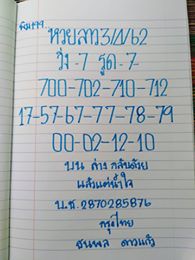 หวยลาว3/4/62
วิ่ง-7 รูด-7
700-702-710-712
17-57-67-77-78-79
00-02-12-10
บน ล่าง กลับด้วย
แล้วแต่น้ำใจ
บ.ช.2870285876
กรุงไทย
ธนพล ดาวแล้ว